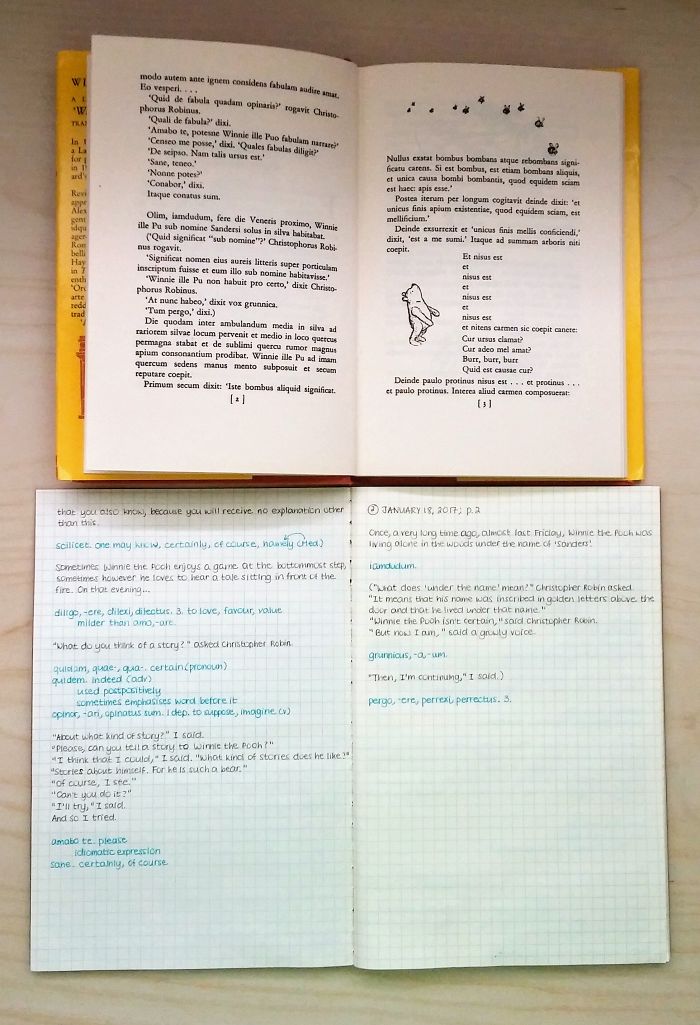 WI
A L
'W
TRAN
In t
a La
for p
in I
ard'
Revi
appe
Alex
gent
idqu
ager
Rom
belli
Hay
in T
enth
'Orc
arte
redd
trad
modo autem ante ignem considens fabulam audire amat.
Eo vesperi. . . .
'Quid de fabula quadam opinaris?' rogavit Christo-
phorus Robinus.
'Quali de fabula?' dixi.
'Amabo te, potesne Winnie ille Puo fabulam narrare?'
'Censeo me posse,' dixi. 'Quales fabulas diligit?'
'De seipso. Nam talis ursus est.'
'Sane, teneo.'
'Nonne potes?'
'Conabor,' dixi.
Itaque conatus sum.
Olim, iamdudum, fere die Veneris proximo, Winnie
ille Pu sub nomine Sandersi solus in silva habitabat.
('Quid significat "sub nomine"?' Christophorus Robi-
nus rogavit.
'Significat nomen eius aureis litteris super porticulam
inscriptum fuisse et eum illo sub nomine habitavisse.'
'Winnie ille Pu non habuit pro certo,' dixit Christo-
phorus Robinus.
'At nunc habeo,' dixit vox grunnica.
'Tum pergo,' dixi.)
Die quodam inter ambulandum media in silva ad
rariorem silvae locum pervenit et medio in loco quercus
permagna stabat et de sublimi quercu rumor magnus
apium consonantium prodibat. Winnie ille Pu ad imam
quercum sedens manus mento subposuit et secum
reputare coepit.
Primum secum dixit: 'Iste bombus aliquid significat.
[ 2 ]
Nullus exstat bombus bombans atque rebombans signi-
ficatu carens. Si est bombus, est etiam bombans aliquis,
et unica causa bombi bombantis, quod equidem sciam
est haec: apis esse.'
Postea iterum per longum cogitavit deinde dixit: 'et
unicus finis apium existentiae, quod equidem sciam, est
mellificium.'
Deinde exsurrexit et 'unicus finis mellis conficiendi,'
dixit, 'est a me sumi.' Itaque ad summam arboris niti
coepit.
Et nisus est
et
nisus est
et
nisus est
et
nisus est
et nitens carmen sic coepit canere:
Cur ursus clamat?
Cur adeo mel amat?
Burr, burr, burr
Quid est causae cur?
Deinde paulo protinus nisus est . . . et protinus . . .
et paulo protinus. Interea aliud carmen composuerat:
[ 3 ]
that you also know, because you will receive no explanation other
than this.
scilicet. one may know, certainly, of course, namely (Med.)
Sometimes Winnie the Pooh enjoys a game at the bottommost step,
sometimes however he loves to hear a tale sitting in front of the
fire. On that evening...
diligo, -ere, dilexi, dilectus. 3. to love, favour, value
milder than amo, -are.
"What do you think of a story?" asked Christopher Robin.
quidam, quae-, quo-. certain (pronoun)
quidem. indeed (adv)
used postpositively
sometimes emphasises word before it
opinor, -ari, opinatus sum. 1 dep. to suppose, imagine (v)
"About what kind of story?" I said.
"Please, can you tell a story to Winnie the Pooh?"
"I think that I could," I said. "What kind of stories does he like?"
"Stories about himself. For he is such a bear."
"Of course, I see."
"Can't you do it?"
"I'll try," I said.
And so I tried.
amabo te. please
idiomatic expression
sane. certainly, of course
② JANUARY 18, 2017; p.2
Once, a very long time ago, almost last Friday, Winnie the Pooh was
living alone in the woods under the name of 'Sanders'.
iamdudum.
("What does 'under the name' mean?" Christopher Robin asked.
"It means that his name was inscribed in golden letters above the
door and that he lived under that name."
"Winnie the Pooh isn't certain," said Christopher Robin.
"But now I am," said a growly voice.
grunnicus, -a, -um.
"Then, I'm continuing," I said.)
pergo, -ere, perrexi, perrectus. 3.